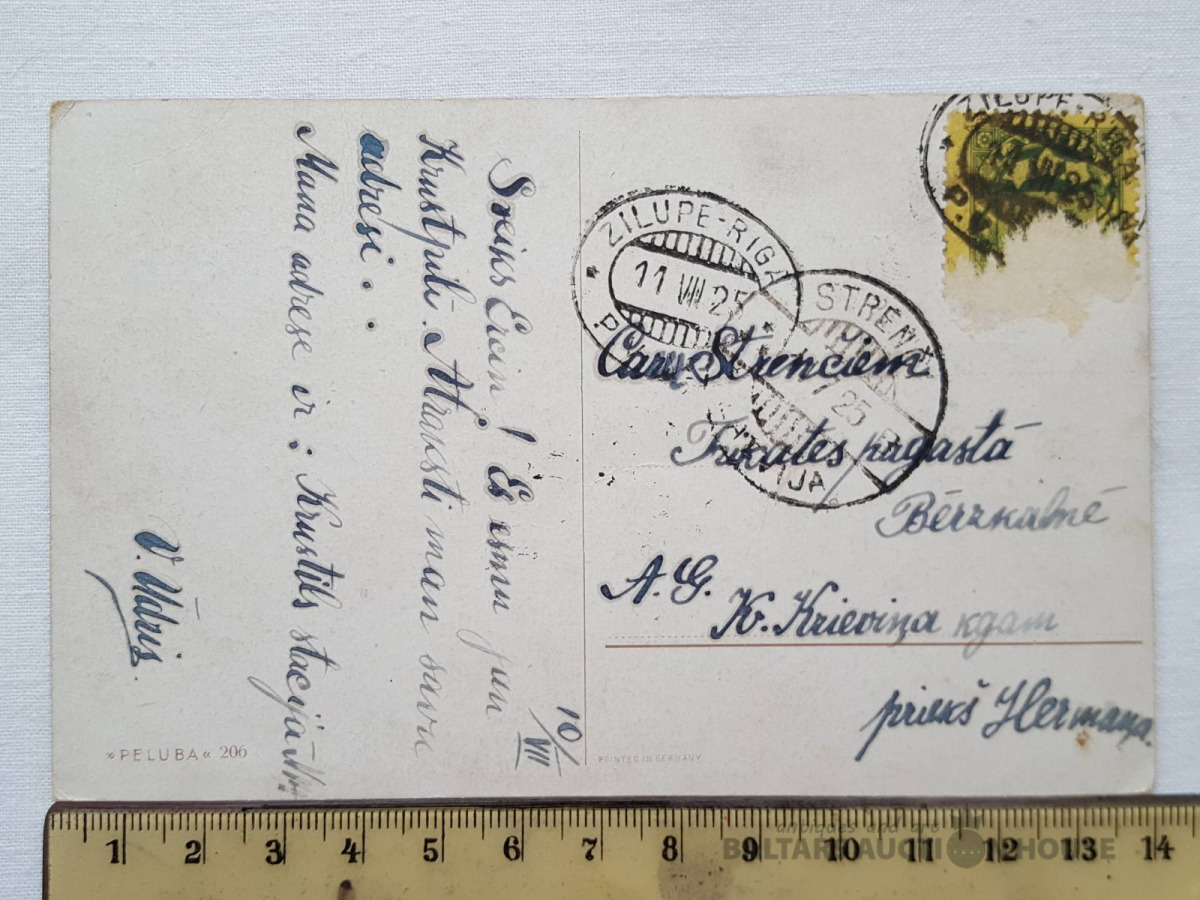 10/VII
Sveiks Ercin! Es esmu jau
Krustpilī. Atraksti man savu
adresi.
Mana adrese ir: Krustpils stacijā
V. Udris.
»PELUBA« 206
PRINTED IN GERMANY
ZILUPE-RIGA
11 VII 25
ZILUPE-RIGA
STRENČ
25
Caur Strenčiem
Trikates pagastā
Bērzkalnē
A. G.
K. Krieviņa kgam
priekš Hermaņa.
1 2 3 4 5 6 7 8 9 10 11 12 13 14
antiques and art
BALTARS AUCTION HOUSE